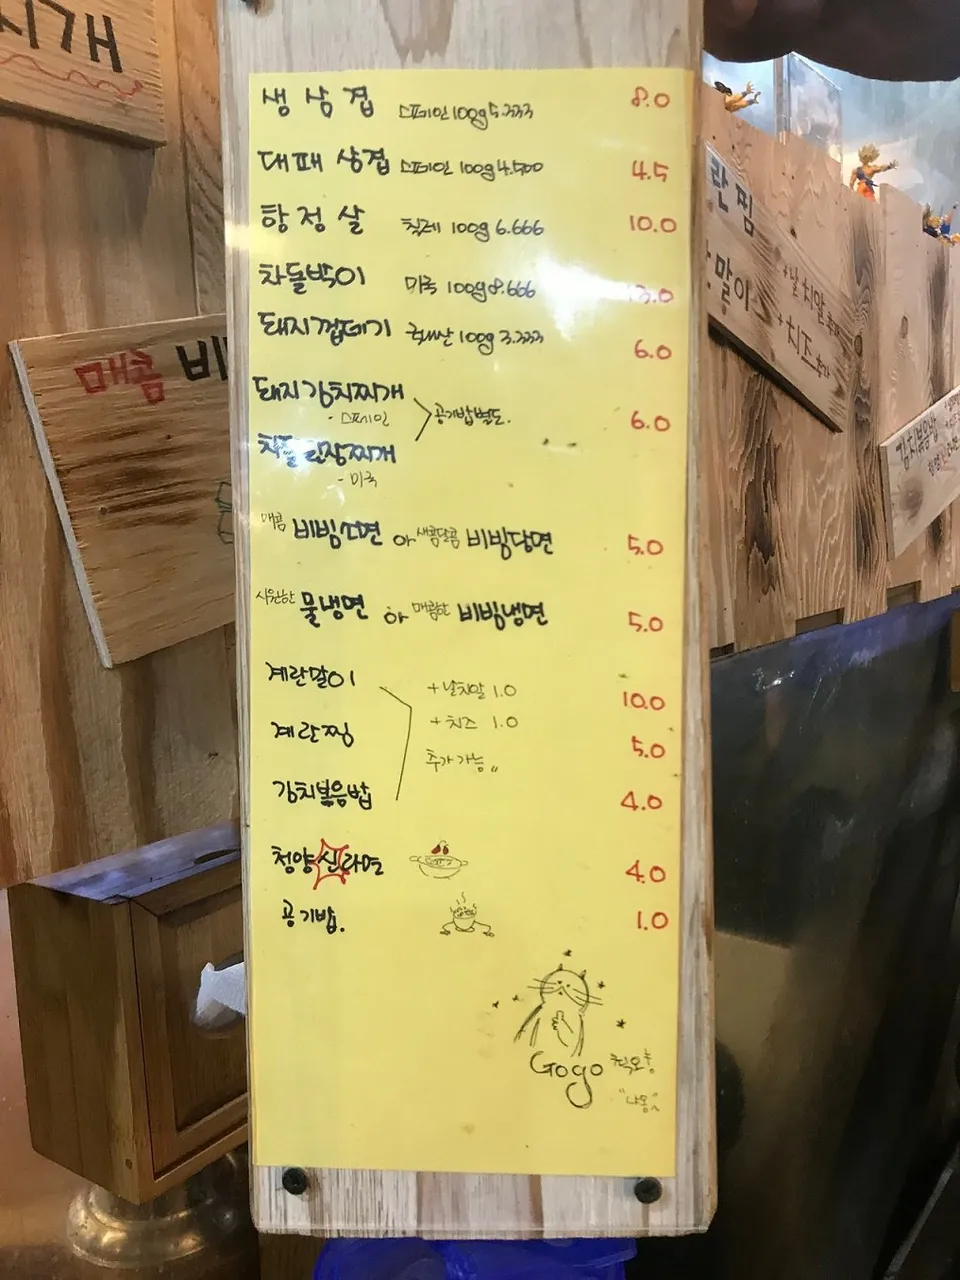 찌개
생삼겹 스페인 100g 5.333 8.0
대패 삼겹 스페인 100g 4.500 4.5
항정살 칠레 100g 6.666 10.0
차돌박이 미국 100g 8.666 13.0
돼지껍데기 국내산 100g 3.333 6.0
돼지김치찌개
- 스페인
공기밥별도. 6.0
차돌된장찌개
- 미국
매콤 비빔소면 or 새콤달콤 비빔당면 5.0
시원한 물냉면 or 매콤한 비빔냉면 5.0
계란말이 +날치알 1.0 10.0
계란찜 +치즈 1.0 5.0
추가 가능
김치볶음밥 4.0
청양신라면 4.0
공기밥. 1.0
Gogo
"냐옹~
매콤 비
란찜
말이
+날치알 추가
+치즈추가
김치볶음밥